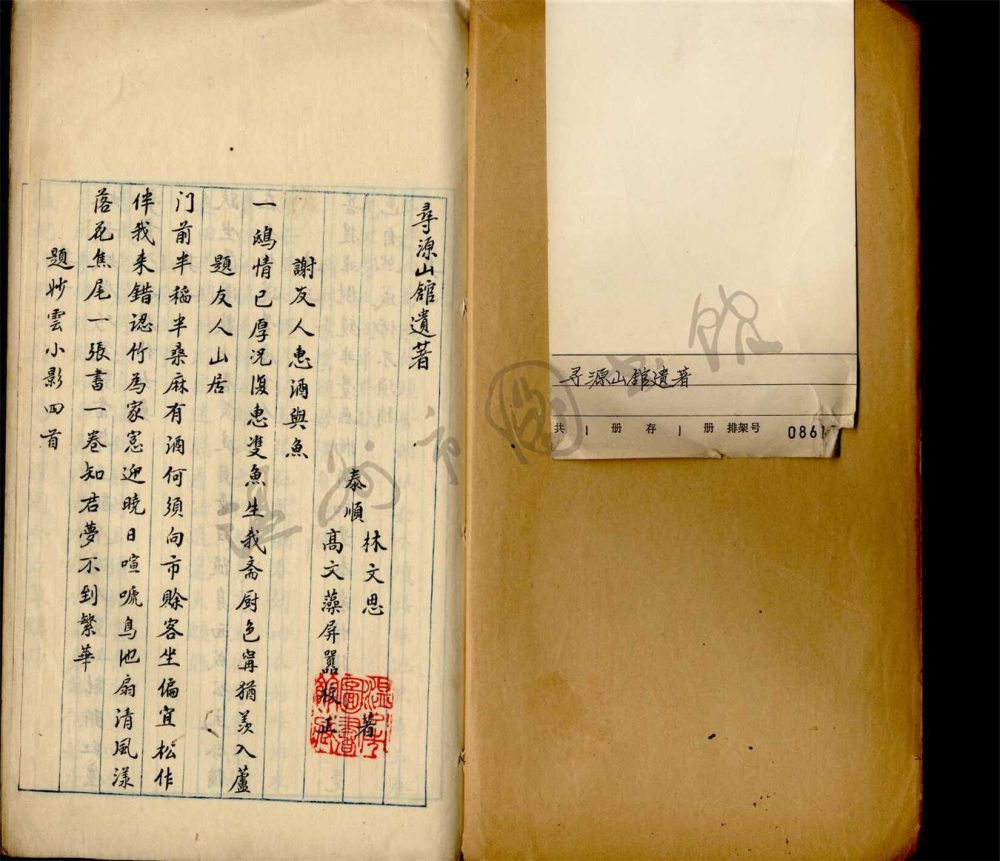 尋源山館遺著
泰順
林文思
著
高文藻屏嚣校正
謝友人惠酒與魚
一鴟情已厚況復惠雙魚生我斋厨色甯猶羡入蘆
題友人山居
门前半稻半桑麻有酒何須向市賒客坐偏宜松作
伴我来錯認竹為家窓迎曉日喧嗁鳥池扇清風漾
落花焦尾一張書一卷知君夢不到繁華
題妙雲小影四首
尋源山館遺著
共 1 册 存 1 册 排架号 0861
温州市圖書館